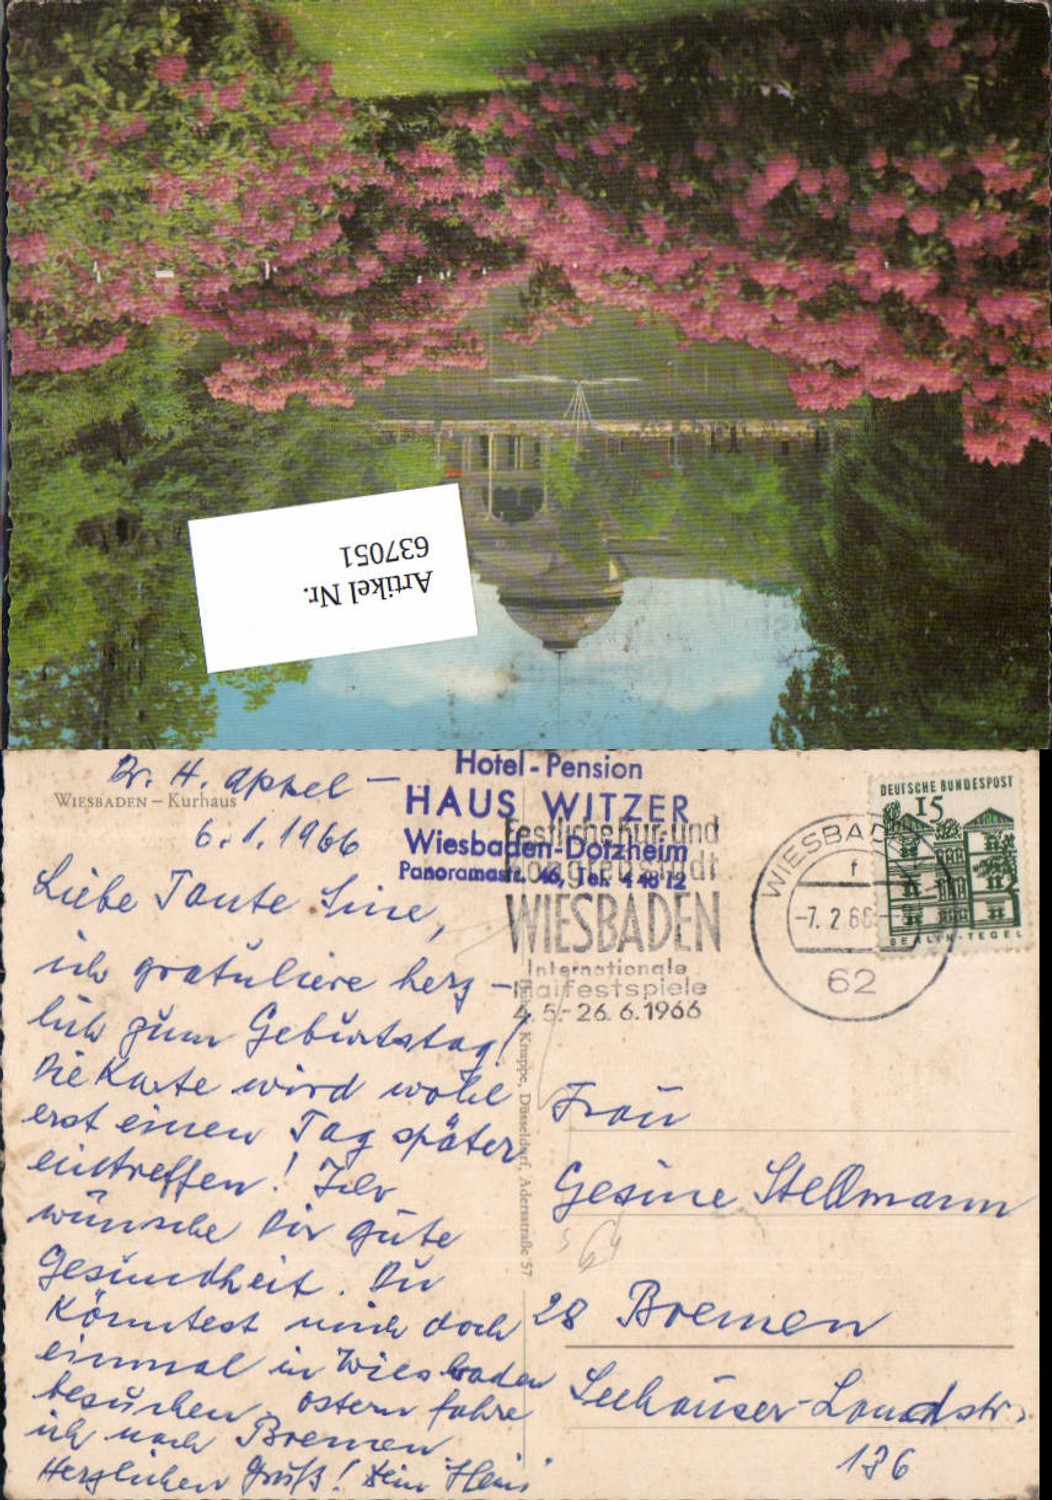 Artikel Nr.
637051
Dr. H. Appel –
WIESBADEN – Kurhaus
6.1.1966
Liebe Tante Sine,
ich gratuliere herz-
lich zum Geburtstag!
Die Karte wird wohl
erst einen Tag später
eintreffen! Ich
wünsche Dir gute
Gesundheit. Du
könntest mich doch
einmal in Wiesbaden
besuchen. Ostern fahre
ich nach Bremen.
Herzlichen Gruß! Dein "Hein"
Hotel - Pension
HAUS WITZER
Wiesbaden-Dotzheim
Panoramastr. 46, Tel. 4 48 12
Festliche Kur- und
Kongreßstadt
WIESBADEN
Internationale
Maifestspiele
4.5.- 26.6.1966
WIESBADEN
f
-7.2.66-
62
DEUTSCHE BUNDESPOST
15
BERLIN-TEGEL
Knappe, Düsseldorf, Adersstraße 57
Frau
Gesine Stellmann
28 Bremen
Leehauser-Landstr.
136